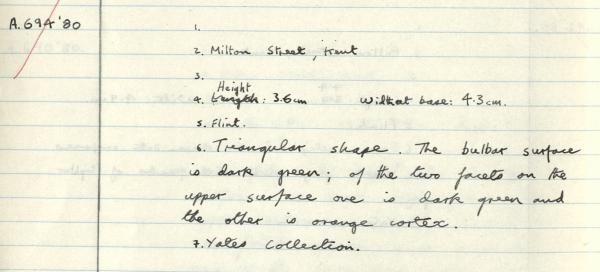 A.694'80
1.
2. Milton Street, Kent
3.
Height
4. Length: 3.6cm Width at base: 4.3cm.
5. Flint.
6. Triangular shape. The bulbar surface
is dark green; of the two facets on the
upper surface one is dark green and
the other is orange cortex.
7. Yates Collection.